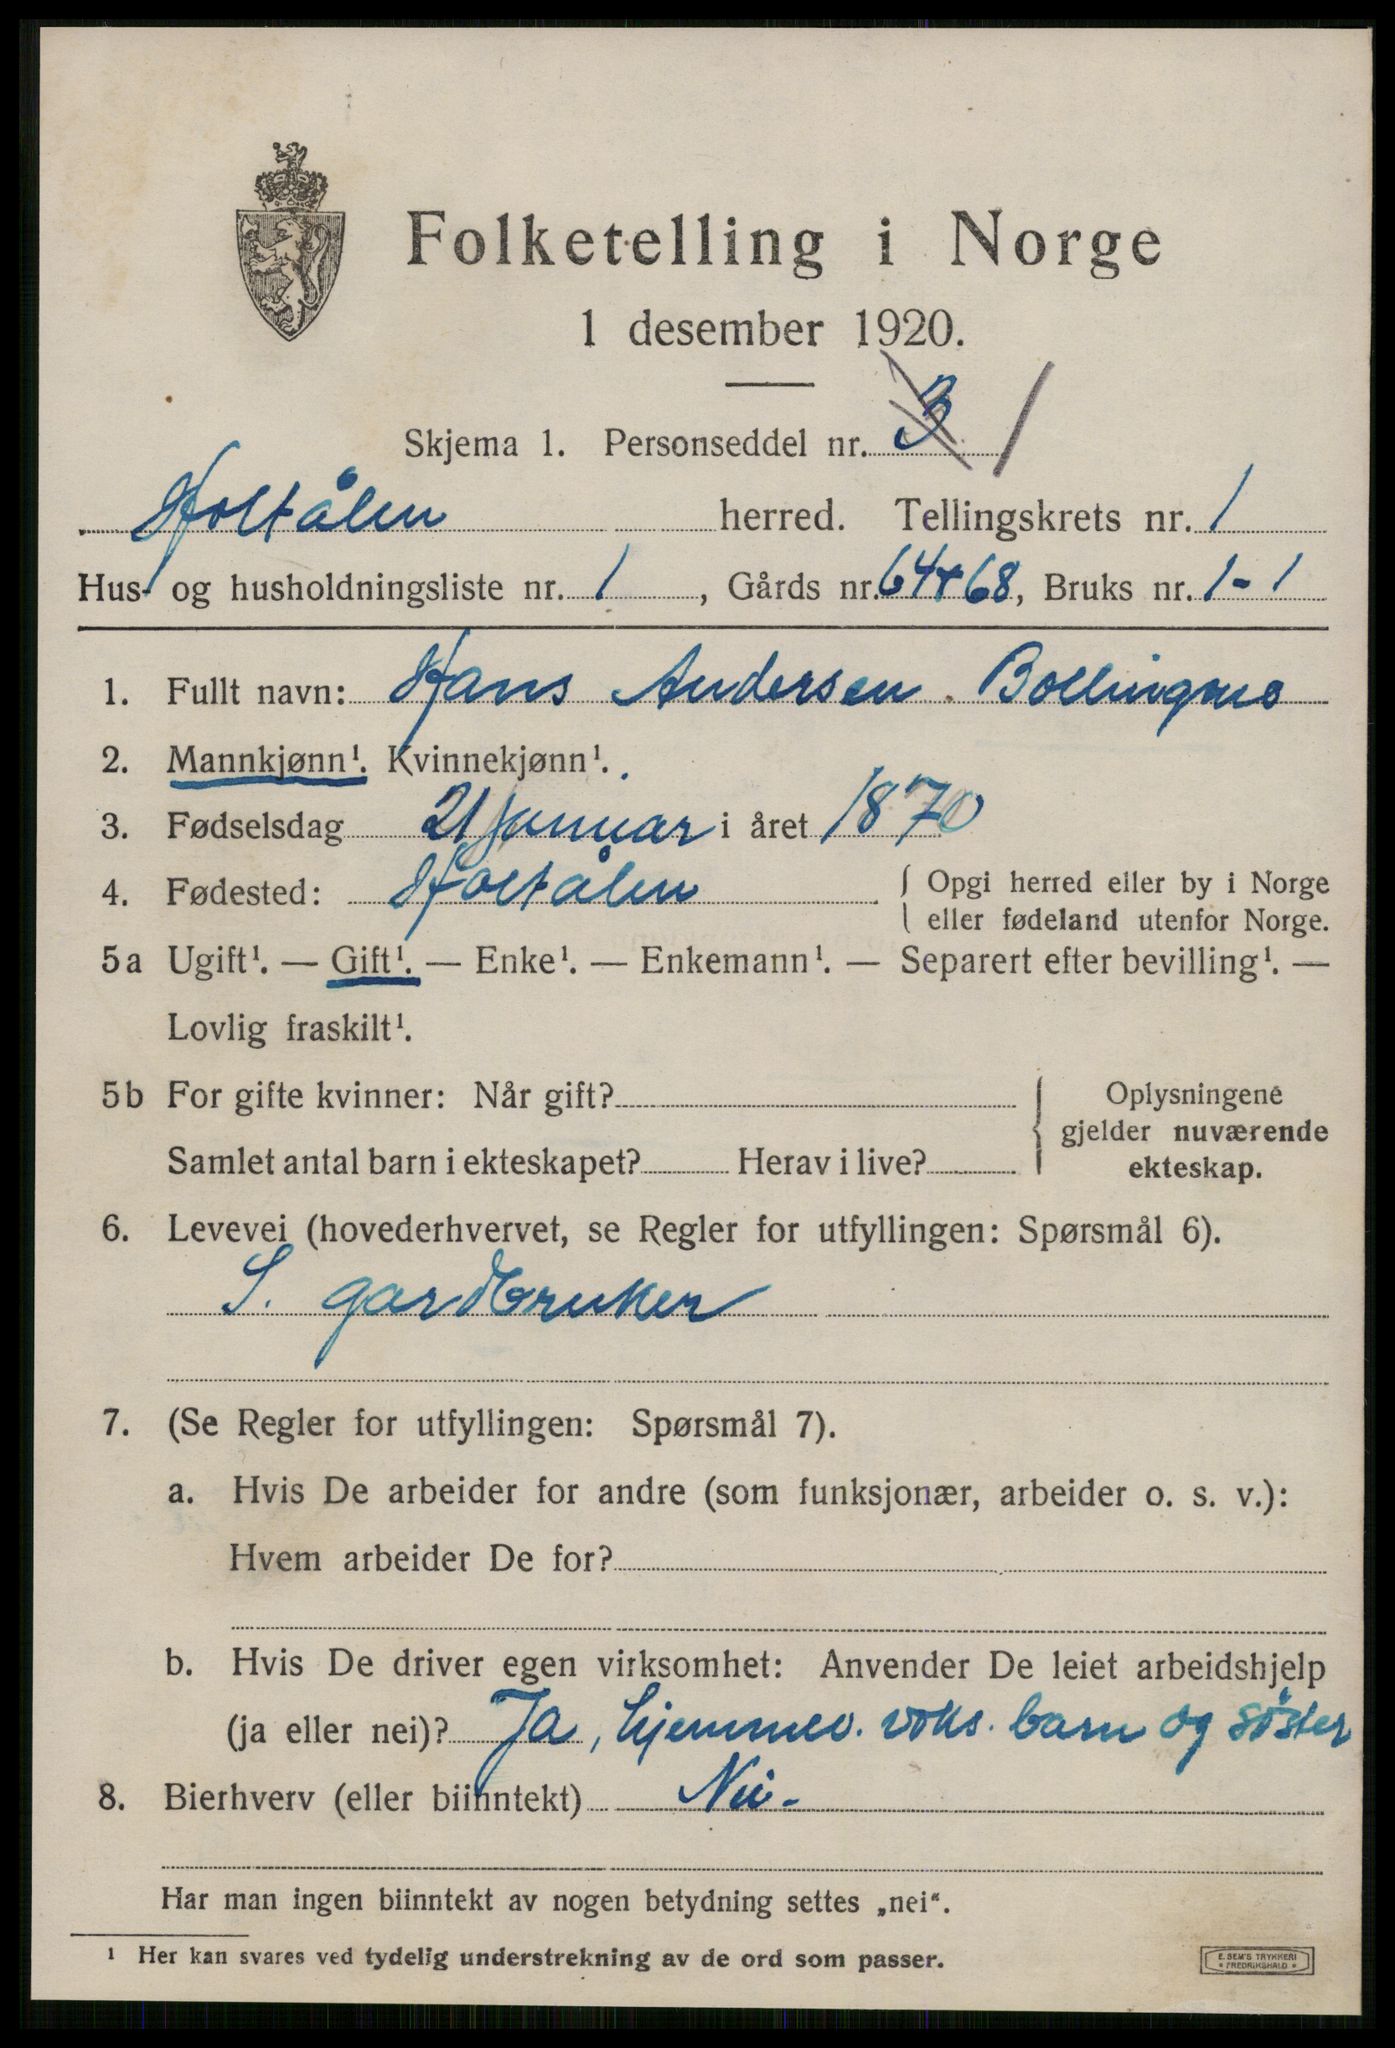 Folketelling i Norge
1 desember 1920.
Skjema 1. Personseddel nr. 3 1
Holtålen herred. Tellingskrets nr. 1
Hus- og husholdningsliste nr. 1, Gårds nr. 64+68, Bruks nr. 1-1
1. Fullt navn: Hans Andersen Bollingmo
2. Mannkjønn¹. Kvinnekjønn¹.
3. Fødselsdag 21 januar i året 1870
4. Fødested: Holtålen { Opgi herred eller by i Norge
eller fødeland utenfor Norge.
5a Ugift¹. — Gift¹. — Enke¹. — Enkemann¹. — Separert efter bevilling¹. —
Lovlig fraskilt¹.
5b For gifte kvinner: Når gift? { Oplysningene
gjelder nuværende
Samlet antal barn i ekteskapet? Herav i live? ekteskap.
6. Levevei (hovederhvervet, se Regler for utfyllingen: Spørsmål 6).
S. gardbruker
7. (Se Regler for utfyllingen: Spørsmål 7).
a. Hvis De arbeider for andre (som funksjonær, arbeider o. s. v.):
Hvem arbeider De for?
b. Hvis De driver egen virksomhet: Anvender De leiet arbeidshjelp
(ja eller nei)? Ja, hjemmev. voks. barn og søster
8. Bierhverv (eller biinntekt) Nei-
Har man ingen biinntekt av nogen betydning settes „nei“.
¹ Her kan svares ved tydelig understrekning av de ord som passer.
E. SEM'S TRYKKERI
FREDRIKSHALD